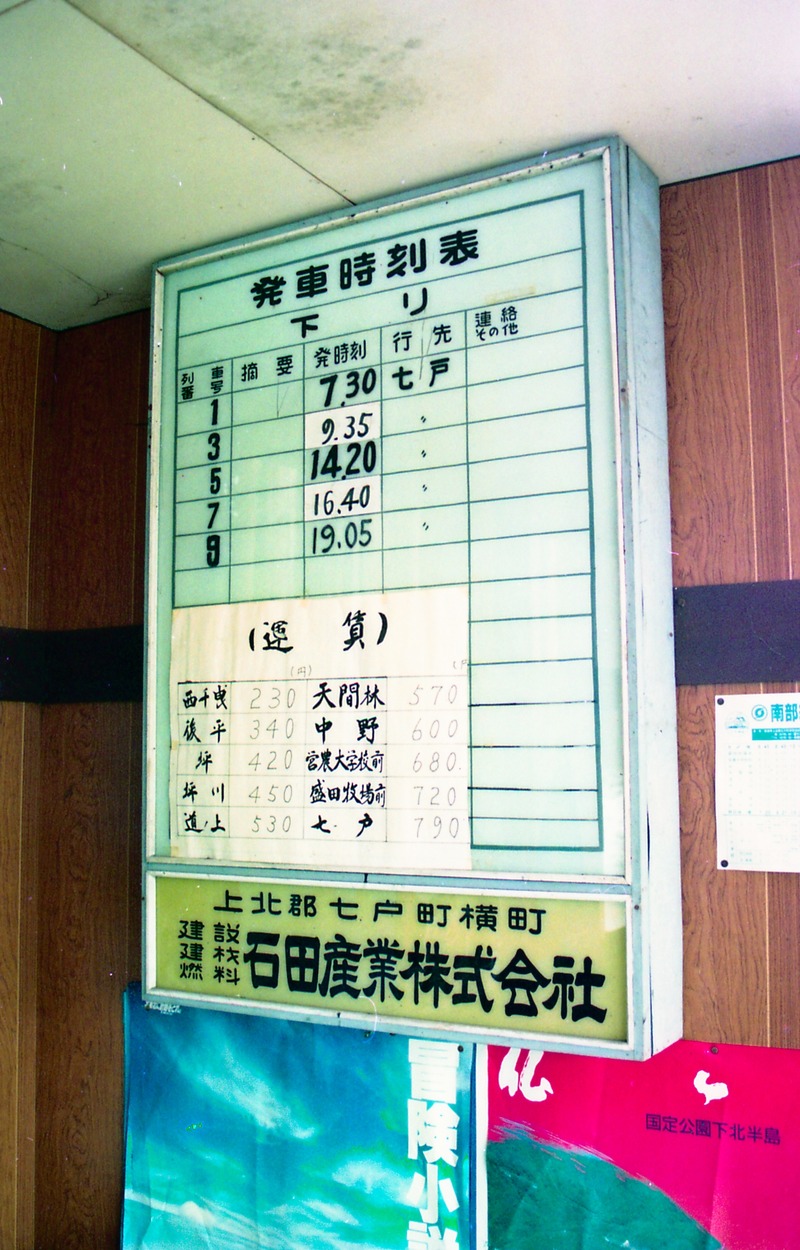 発車時刻表
下り
列車番号 摘要 発時刻 行先 連絡その他
1 7.30 七戸
3 9.35 〃
5 14.20 〃
7 16.40 〃
9 19.05 〃
(運賃)
(円)
西千曳 230 天間林 570
後平 340 中野 600
坪 420 営農大学校前 680
坪川 450 盛田牧場前 720
道ノ上 530 七戸 790
上北郡七戸町横町
建設
建材
燃料
石田産業株式会社
南部
冒険小
国定公園下北半島